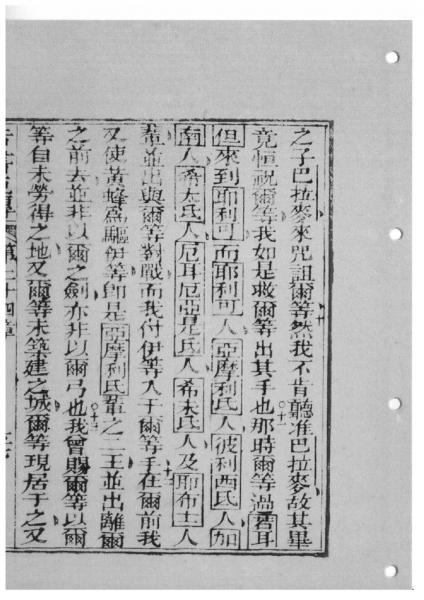 之子巴拉麥來咒詛爾等然我不肯聽准巴拉麥故其畢
竟恒祝爾等我如是救爾等出其手也○十一那時爾等過若耳
但來到耶利可而耶利可人亞摩利氏人彼利西氏人加
南人希太氏人厄耳厄亞是氏人希未氏人及耶布士人
輩並出與爾等對戰而我付伊等人于爾等手在爾前我
又使黃蜂爲驅伊等卽是亞摩利氏輩之二王並出離爾
之前去並非以爾之劍亦非以爾弓也○十三我曾賜爾等以爾
等自未勞得之地又爾等未筑建之城爾等現居于之又
第二十四章